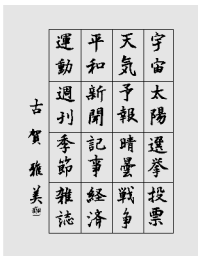 宇宙 太陽 選挙 投票
天気 予報 晴曇 戦争
平和 新聞 記事 経済
運動 週刊 季節 雑誌
古賀雅美